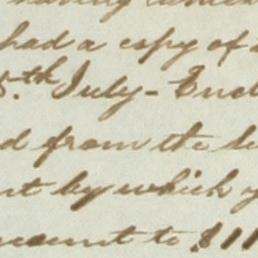 having
had a copy of
5.th July - Encl
d from the
nt by which y
ccount to $11